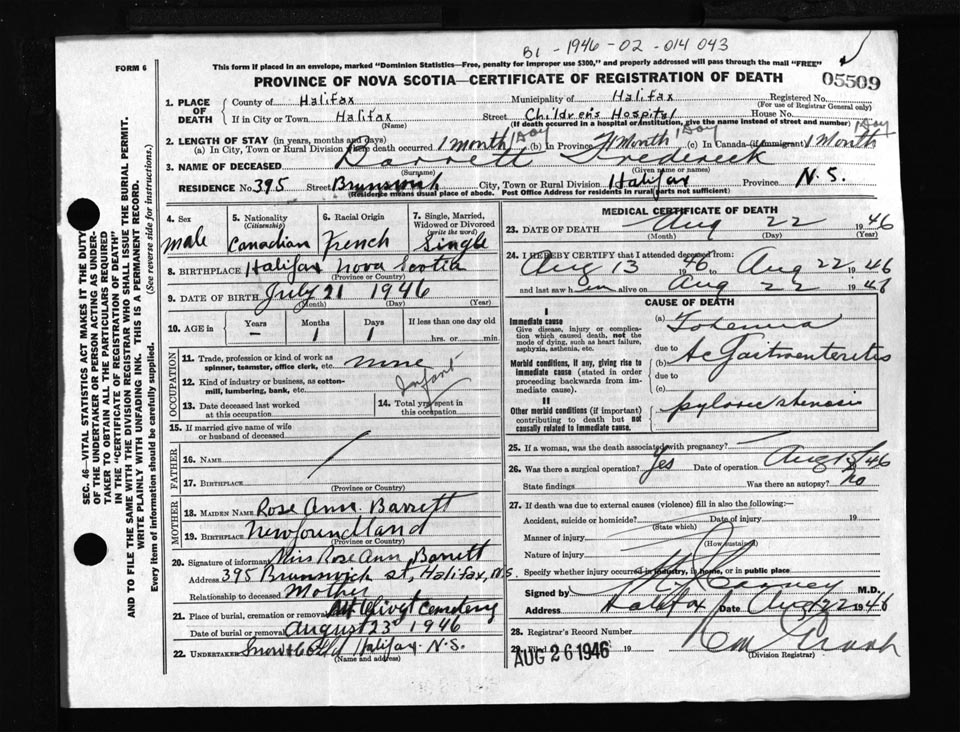 B1 - 1946 - 02 - 014043
FORM 6
This form if placed in an envelope, marked "Dominion Statistics—Free, penalty for improper use $300," and properly addressed will pass through the mail "FREE"
PROVINCE OF NOVA SCOTIA—CERTIFICATE OF REGISTRATION OF DEATH
05509
1. PLACE OF DEATH
County of Halifax Municipality of Halifax Registered No.
(For use of Registrar General only)
If in City or Town Halifax Street Children's Hospital House No.
(Name) (If death occurred in a hospital or institution, give the name instead of street and number)
1 Day 1 Day 1 Day
2. LENGTH OF STAY (in years, months and days)
(a) In City, Town or Rural Division where death occurred 1 month (b) In Province 1 Month (c) In Canada (if immigrant) 1 Month
3. NAME OF DECEASED Barrett Frederick
(Surname) (Given name or names)
RESIDENCE No. 395 Street Brunswick City, Town or Rural Division Halifax Province N.S.
(Residence means usual place of abode. Post Office Address for residents in rural parts not sufficient)
4. Sex
male
5. Nationality
(Citizenship)
Canadian
6. Racial Origin
French
7. Single, Married, Widowed or Divorced
(write the word)
Single
8. BIRTHPLACE Halifax Nova Scotia
(Province or Country)
9. DATE OF BIRTH July 21 1946
(Month) (Day) (Year)
10. AGE in
Years Months Days If less than one day old
- 1 1 hrs. or min.
OCCUPATION
11. Trade, profession or kind of work as spinner, teamster, office clerk, etc. none
12. Kind of industry or business, as cotton-mill, lumbering, bank, etc. Infant
13. Date deceased last worked at this occupation
14. Total yrs. spent in this occupation
15. If married give name of wife or husband of deceased
FATHER
16. NAME
17. BIRTHPLACE
(Province or Country)
MOTHER
18. MAIDEN NAME Rose Ann Barrett
19. BIRTHPLACE Newfoundland
(Province or Country)
20. Signature of informant Miss Rose Ann Barrett
Address 395 Brunswick st, Halifax, N.S.
Relationship to deceased Mother
21. Place of burial, cremation or removal Mt Olivet Cemetery
Date of burial or removal August 23rd 1946
22. UNDERTAKER Snow & Co Ltd Halifax N.S.
(Name and address)
MEDICAL CERTIFICATE OF DEATH
23. DATE OF DEATH Aug 22 1946
(Month) (Day) (Year)
24. I HEREBY CERTIFY that I attended deceased from:
Aug 13 1946 to Aug 22 1946
and last saw him alive on Aug 22 1946
CAUSE OF DEATH
I
Immediate cause
Give disease, injury or complication which caused death, not the mode of dying, such as heart failure, asphyxia, asthenia, etc.
(a)
due to
Morbid conditions, if any, giving rise to immediate cause (stated in order proceeding backwards from immediate cause).
(b) Ac Gastroenteritis
due to
(c)
II
Other morbid conditions (if important) contributing to death but not causally related to immediate cause.
pyloric stenosis
25. If a woman, was the death associated with pregnancy?
26. Was there a surgical operation? Yes Date of operation Aug 15/46
State findings Was there an autopsy? No
27. If death was due to external causes (violence) fill in also the following:—
Accident, suicide or homicide? Date of injury 19
(State which)
Manner of injury
(How sustained)
Nature of injury
Specify whether injury occurred in industry, in home, or in public place
Signed by M.D.
Address Halifax Date Aug 22 1946
28. Registrar's Record Number
29. Filed AUG 26 1946 19
(Division Registrar)
SEC. 46—VITAL STATISTICS ACT MAKES IT THE DUTY
OF THE UNDERTAKER OR PERSON ACTING AS UNDER-
TAKER TO OBTAIN ALL THE PARTICULARS REQUIRED
IN THE "CERTIFICATE OF REGISTRATION OF DEATH"
AND TO FILE THE SAME WITH THE DIVISION REGISTRAR WHO SHALL ISSUE THE BURIAL PERMIT.
WRITE PLAINLY WITH UNFADING INK. THIS IS A PERMANENT RECORD.
Every item of information should be carefully supplied. (See reverse side for instructions.)